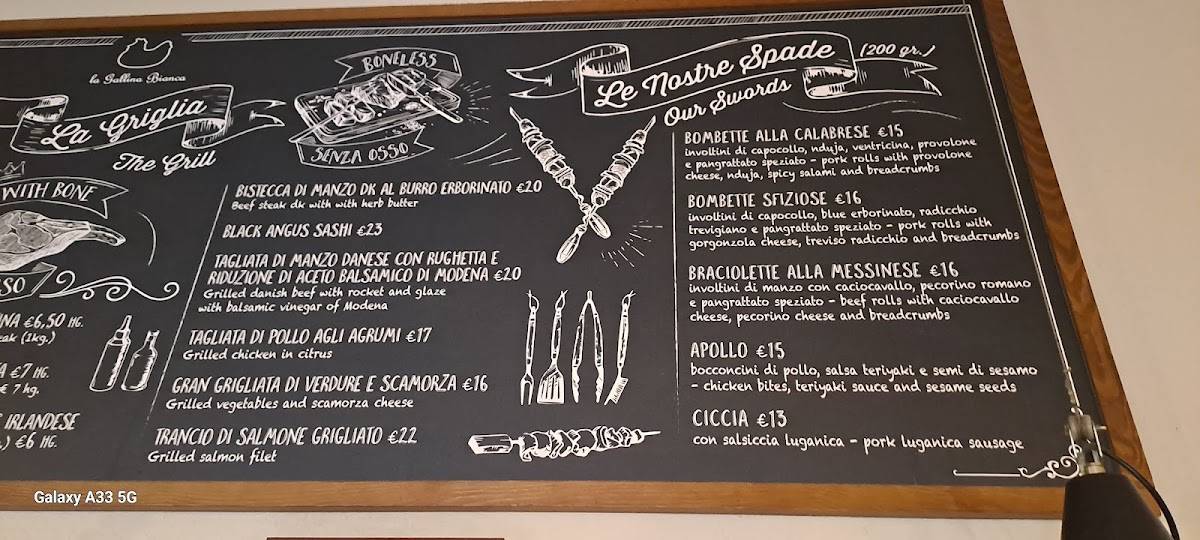 la Gallina Bianca
La Griglia
The Grill
WITH BONE
€6,50 HG.
(1kg.)
€7 HG.
€ 7 hg.
IRLANDESE
€6 HG.
BONELESS
SENZA OSSO
BISTECCA DI MANZO DK AL BURRO ERBORINATO €20
Beef steak dk with with herb butter
BLACK ANGUS SASHI €23
TAGLIATA DI MANZO DANESE CON RUGHETTA E
RIDUZIONE DI ACETO BALSAMICO DI MODENA €20
Grilled danish beef with rocket and glaze
with balsamic vinegar of Modena
TAGLIATA DI POLLO AGLI AGRUMI €17
Grilled chicken in citrus
GRAN GRIGLIATA DI VERDURE E SCAMORZA €16
Grilled vegetables and scamorza cheese
TRANCIO DI SALMONE GRIGLIATO €22
Grilled salmon filet
Le Nostre Spade (200 gr.)
Our Swords
BOMBETTE ALLA CALABRESE €15
involtini di capocollo, nduja, ventricina, provolone
e pangrattato speziato - pork rolls with provolone
cheese, nduja, spicy salami and breadcrumbs
BOMBETTE SFIZIOSE €16
involtini di capocollo, blue erborinato, radicchio
trevigiano e pangrattato speziato - pork rolls with
gorgonzola cheese, treviso radicchio and breadcrumbs
BRACIOLETTE ALLA MESSINESE €16
involtini di manzo con caciocavallo, pecorino romano
e pangrattato speziato - beef rolls with caciocavallo
cheese, pecorino cheese and breadcrumbs
APOLLO €15
bocconcini di pollo, salsa teriyaki e semi di sesamo
- chicken bites, teriyaki sauce and sesame seeds
CICCIA €13
con salsiccia luganica - pork luganica sausage
Galaxy A33 5G